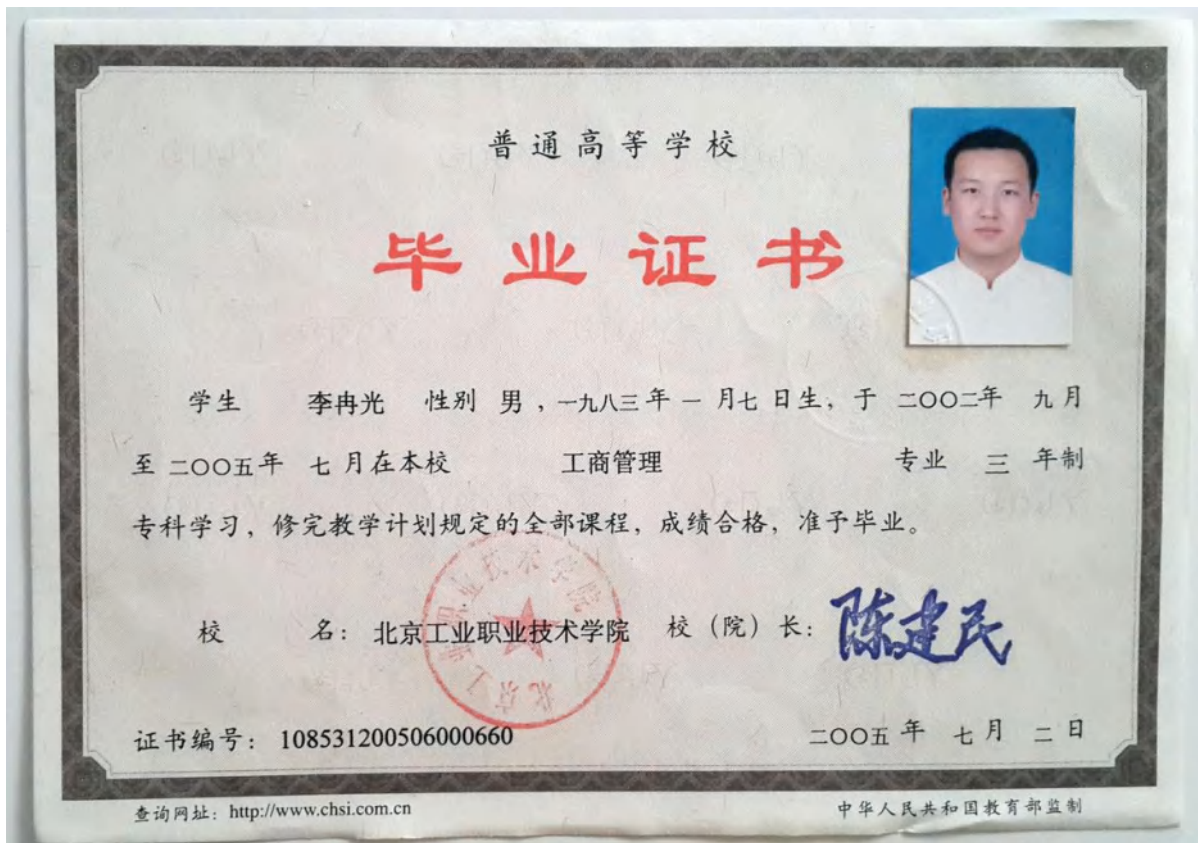 普通高等学校
毕业证书
学生 李冉光 性别 男 ，一九八三年 一 月七 日生，于 二〇〇二年 九月
至 二〇〇五年 七 月在本校 工商管理 专业 三 年制
专科学习，修完教学计划规定的全部课程，成绩合格，准予毕业。
校 名：北京工业职业技术学院 校（院）长：陈建民
北京工业职业技术学院
证书编号：108531200506000660 二〇〇五 年 七 月 二 日
查询网址：http://www.chsi.com.cn 中华人民共和国教育部监制